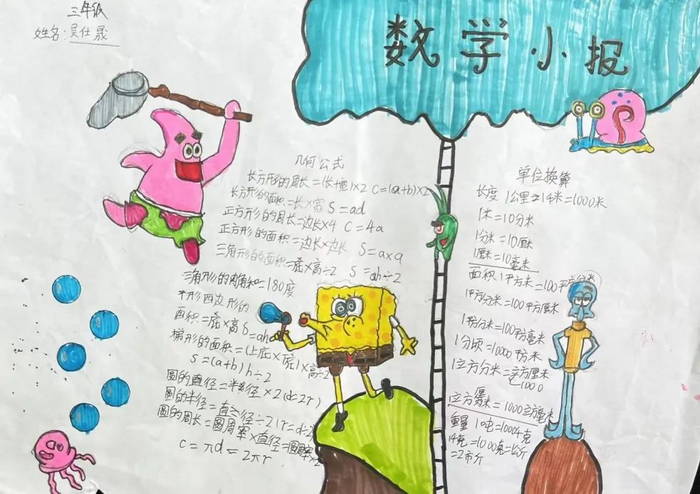 三年级
姓名:吴仕晟
数学小报
几何公式
长方形的周长=(长+宽)×2 C=(a+b)×2
长方形的面积=长×宽 S=ad
正方形的周长=边长×4 C=4a
正方形的面积=边长×边长 S=a×a
三角形的面积=底×高÷2 S=ah÷2
三角形的内角和=180度
平形四边形的
面积=底×高 S=ah
梯形的面积=(上底×下底)×高÷2
S=(a+b)h÷2
圆的直径=半径×2(d=2r)
圆的半径=直径÷2(r=d÷
圆的周长=圆周率×直径=圆周率×
c=πd=2πr
单位换算
长度 1公里=1千米=1000米
1米=10分米
1分米=10厘米
1厘米=10毫米
面积 1平方米=100平方分米
1平方分米=100平方厘米
1平方分米=100平方毫米
1公顷=10000平方米
1立方分米=立方厘米
1000
1立方厘米=1000立方毫米
重量 1吨=1000千克
1千克=1000克=1公斤
=2市斤